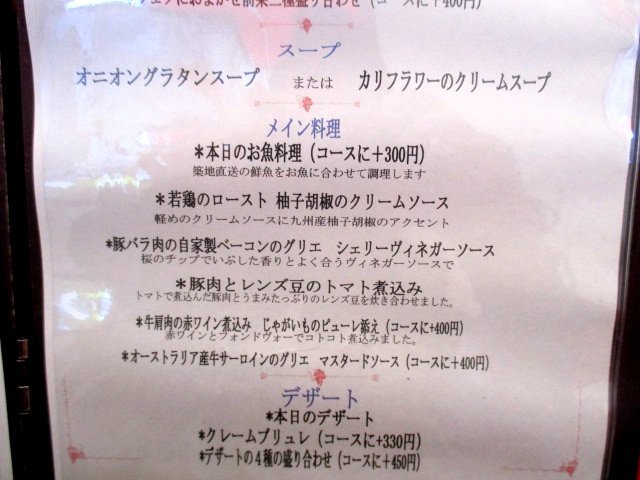 シェフにおまかせ前菜三種盛り合わせ (コースに+400円)
スープ
オニオングラタンスープ または カリフラワーのクリームスープ
メイン料理
*本日のお魚料理 (コースに+300円)
築地直送の鮮魚をお魚に合わせて調理します
*若鶏のロースト 柚子胡椒のクリームソース
軽めのクリームソースに九州産柚子胡椒のアクセント
*豚バラ肉の自家製ベーコンのグリエ シェリーヴィネガーソース
桜のチップでいぶした香りとよく合うヴィネガーソースで
*豚肉とレンズ豆のトマト煮込み
トマトで煮込んだ豚肉とうまみたっぷりのレンズ豆を炊き合わせました。
*牛肩肉の赤ワイン煮込み じゃがいものピューレ添え (コースに+400円)
赤ワインとフォンドヴォーでコトコト煮込みました。
*オーストラリア産牛サーロインのグリエ マスタードソース (コースに+400円)
デザート
*本日のデザート
*クレームブリュレ (コースに+330円)
*デザートの4種の盛り合わせ (コースに+450円)